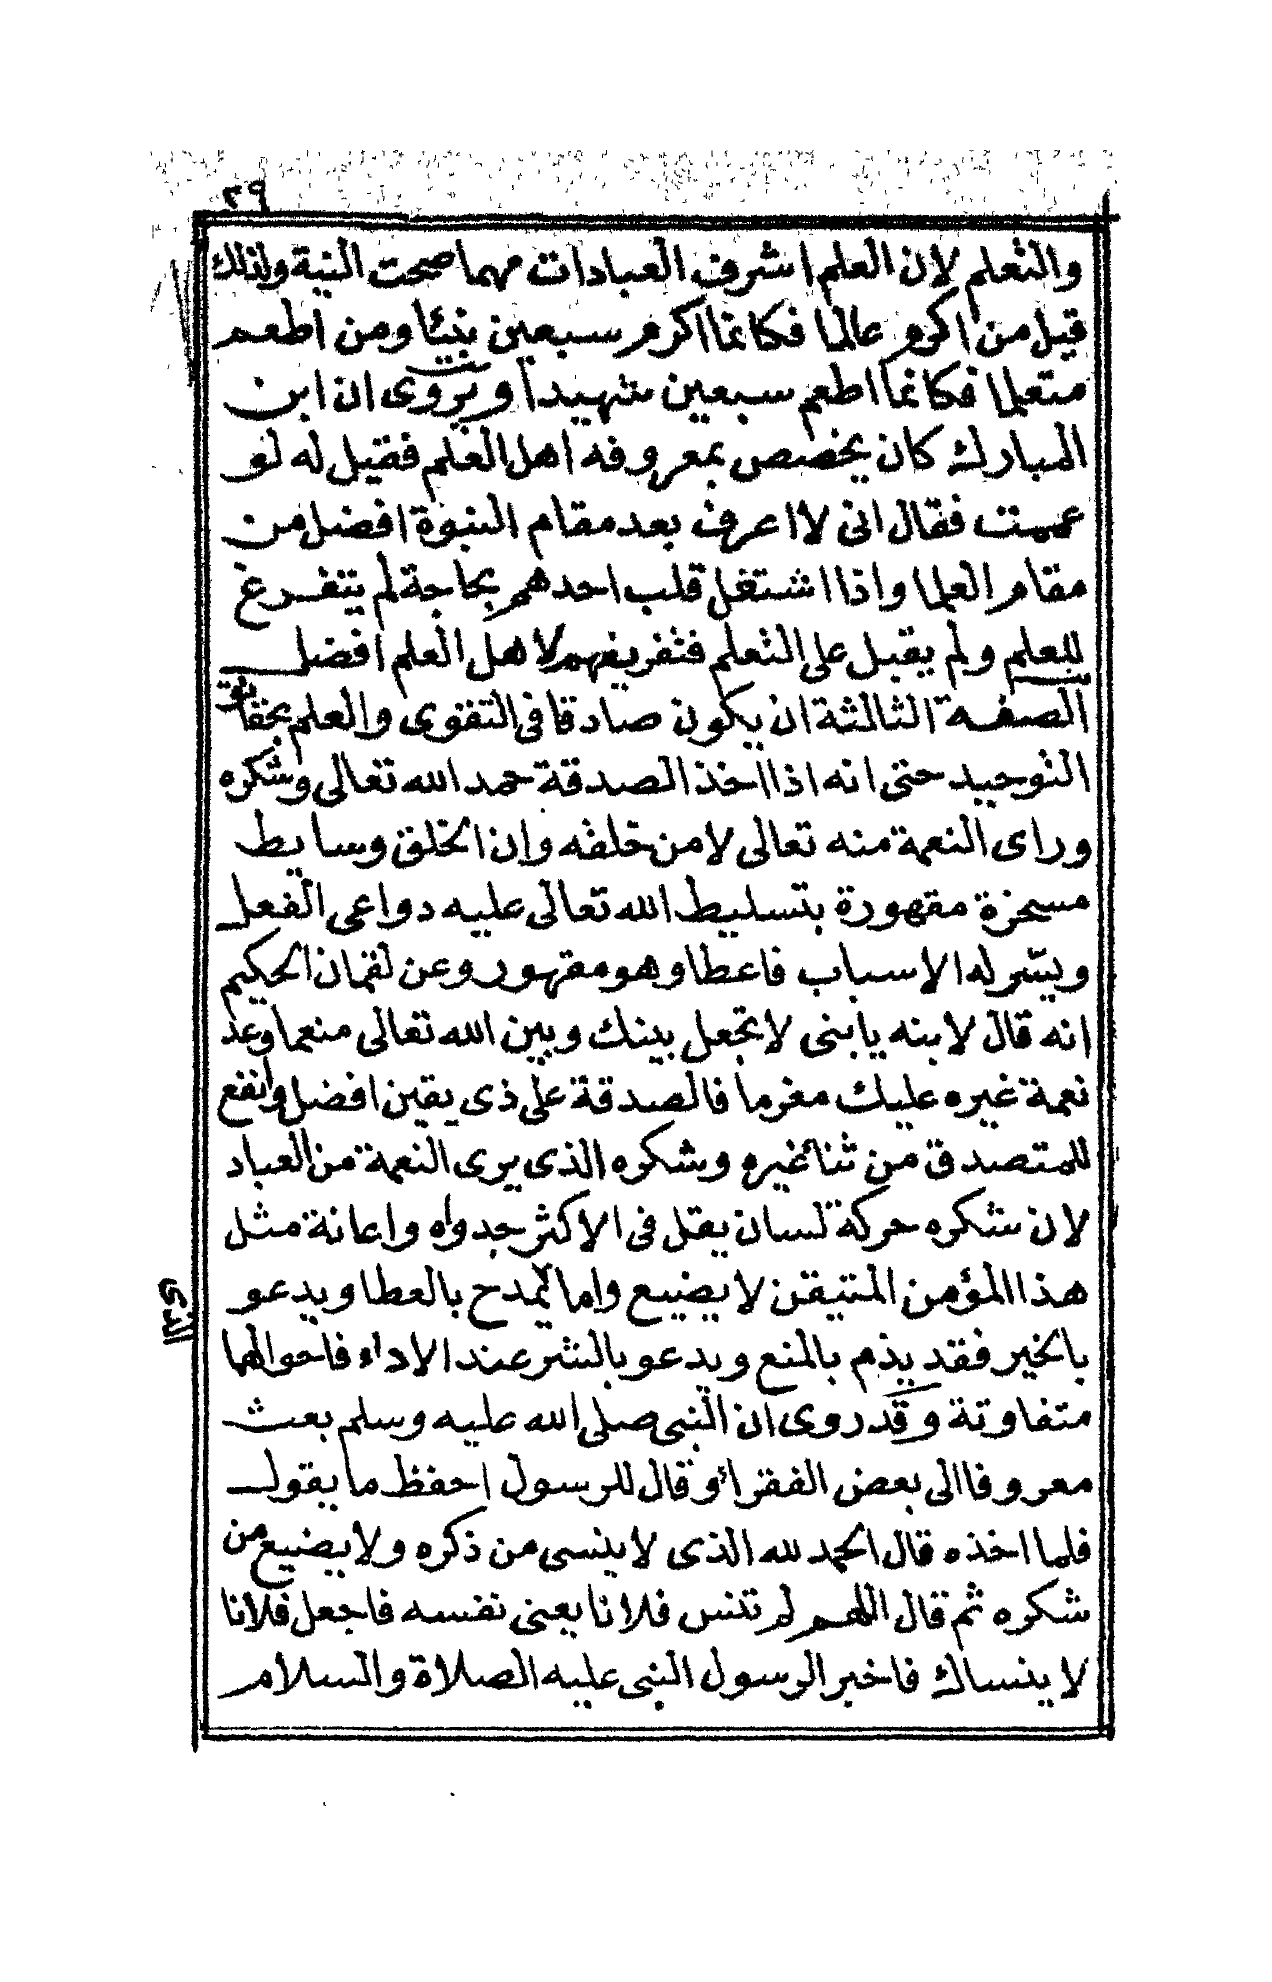 ٣٩
والتعلم لان العلم اشرف العبادات مهما صحت النية ولذلك
قيل من اكرم عالما فكانما اكرم سبعين نبيئا ومن اطعم
متعلما فكانما اطعم سبعين شهيدا ويروى ان ابن
المبارك كان يخصص بمعروفه اهل العلم فقيل له لو
عممت فقال انى لا اعرف بعد مقام النبوة افضل من
مقام العلما واذا اشتغل قلب احدهم بحاجة لم يتفرغ
للعلم ولم يقبل على التعلم فتفريغهم لاهل العلم افضل
الصفة الثالثة ان يكون صادقا فى التقوى والعلم بحقايق
التوحيد حتى انه اذا اخذ الصدقة حمد الله تعالى وشكره
وراى النعمة منه تعالى لا من خلقه وان الخلق وسايط
مسخرة مقهورة بتسليط الله تعالى عليه دواعى الفعل
ويسر له الاسباب فاعطا وهو مقهور وعن لقمان الحكيم
انه قال لابنه يا بنى لا تجعل بينك وبين الله تعالى منعما وعد
نعمة غيره عليك مغرما فالصدقة على ذى يقين افضل وانفع
للمتصدق من ثنا غيره وشكره الذى يرى النعمة من العباد
لان شكره حركة لسان يقل فى الاكثر جدواه واعانة مثل
هذا المؤمن المتيقن لا يضيع واما يمدح بالعطا ويدعو
الذى
بالخير فقد يذم بالمنع ويدعو بالشر عند الاداء فاحوالها
متفاوتة وقد روى ان النبى صلى الله عليه وسلم بعث
معروفا الى بعض الفقرائ وقال للرسول احفظ ما يقول
فلما اخذه قال الحمد لله الذى لا ينسى من ذكره ولا يضيع من
شكره ثم قال اللهم لم تنس فلانا يعنى نفسه فاجعل فلانا
لا ينساك فاخبر الرسول النبى عليه الصلاة والسلام